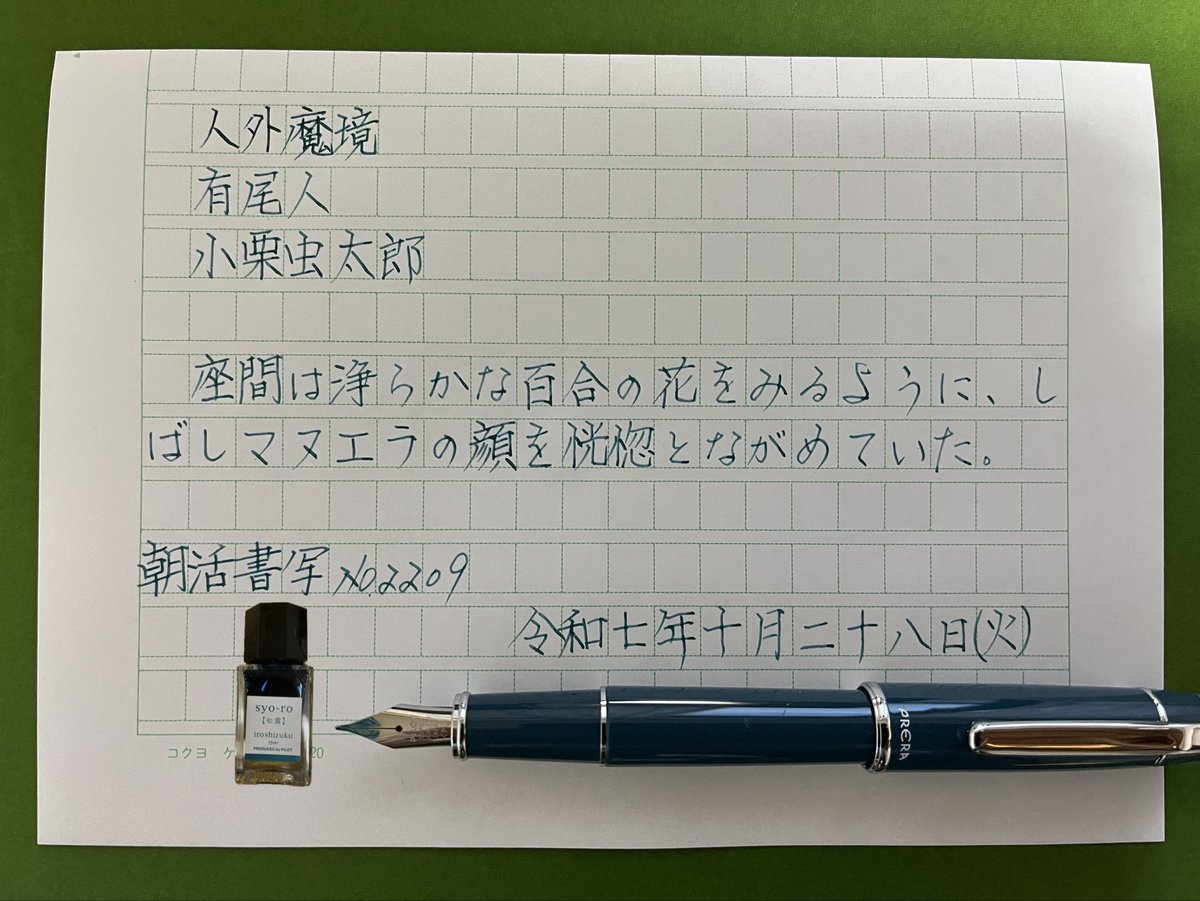 人外魔境
有尾人
小栗虫太郎
座間は浄らかな百合の花をみるように、し
ばしマヌエラの顔を恍惚とながめていた。
朝活書写No.2209
令和七年十月二十八日(火)
syo-ro
【松露】
iroshizuku
15ml
PRODUCED by PILOT
PRERA
コクヨ ケ
20